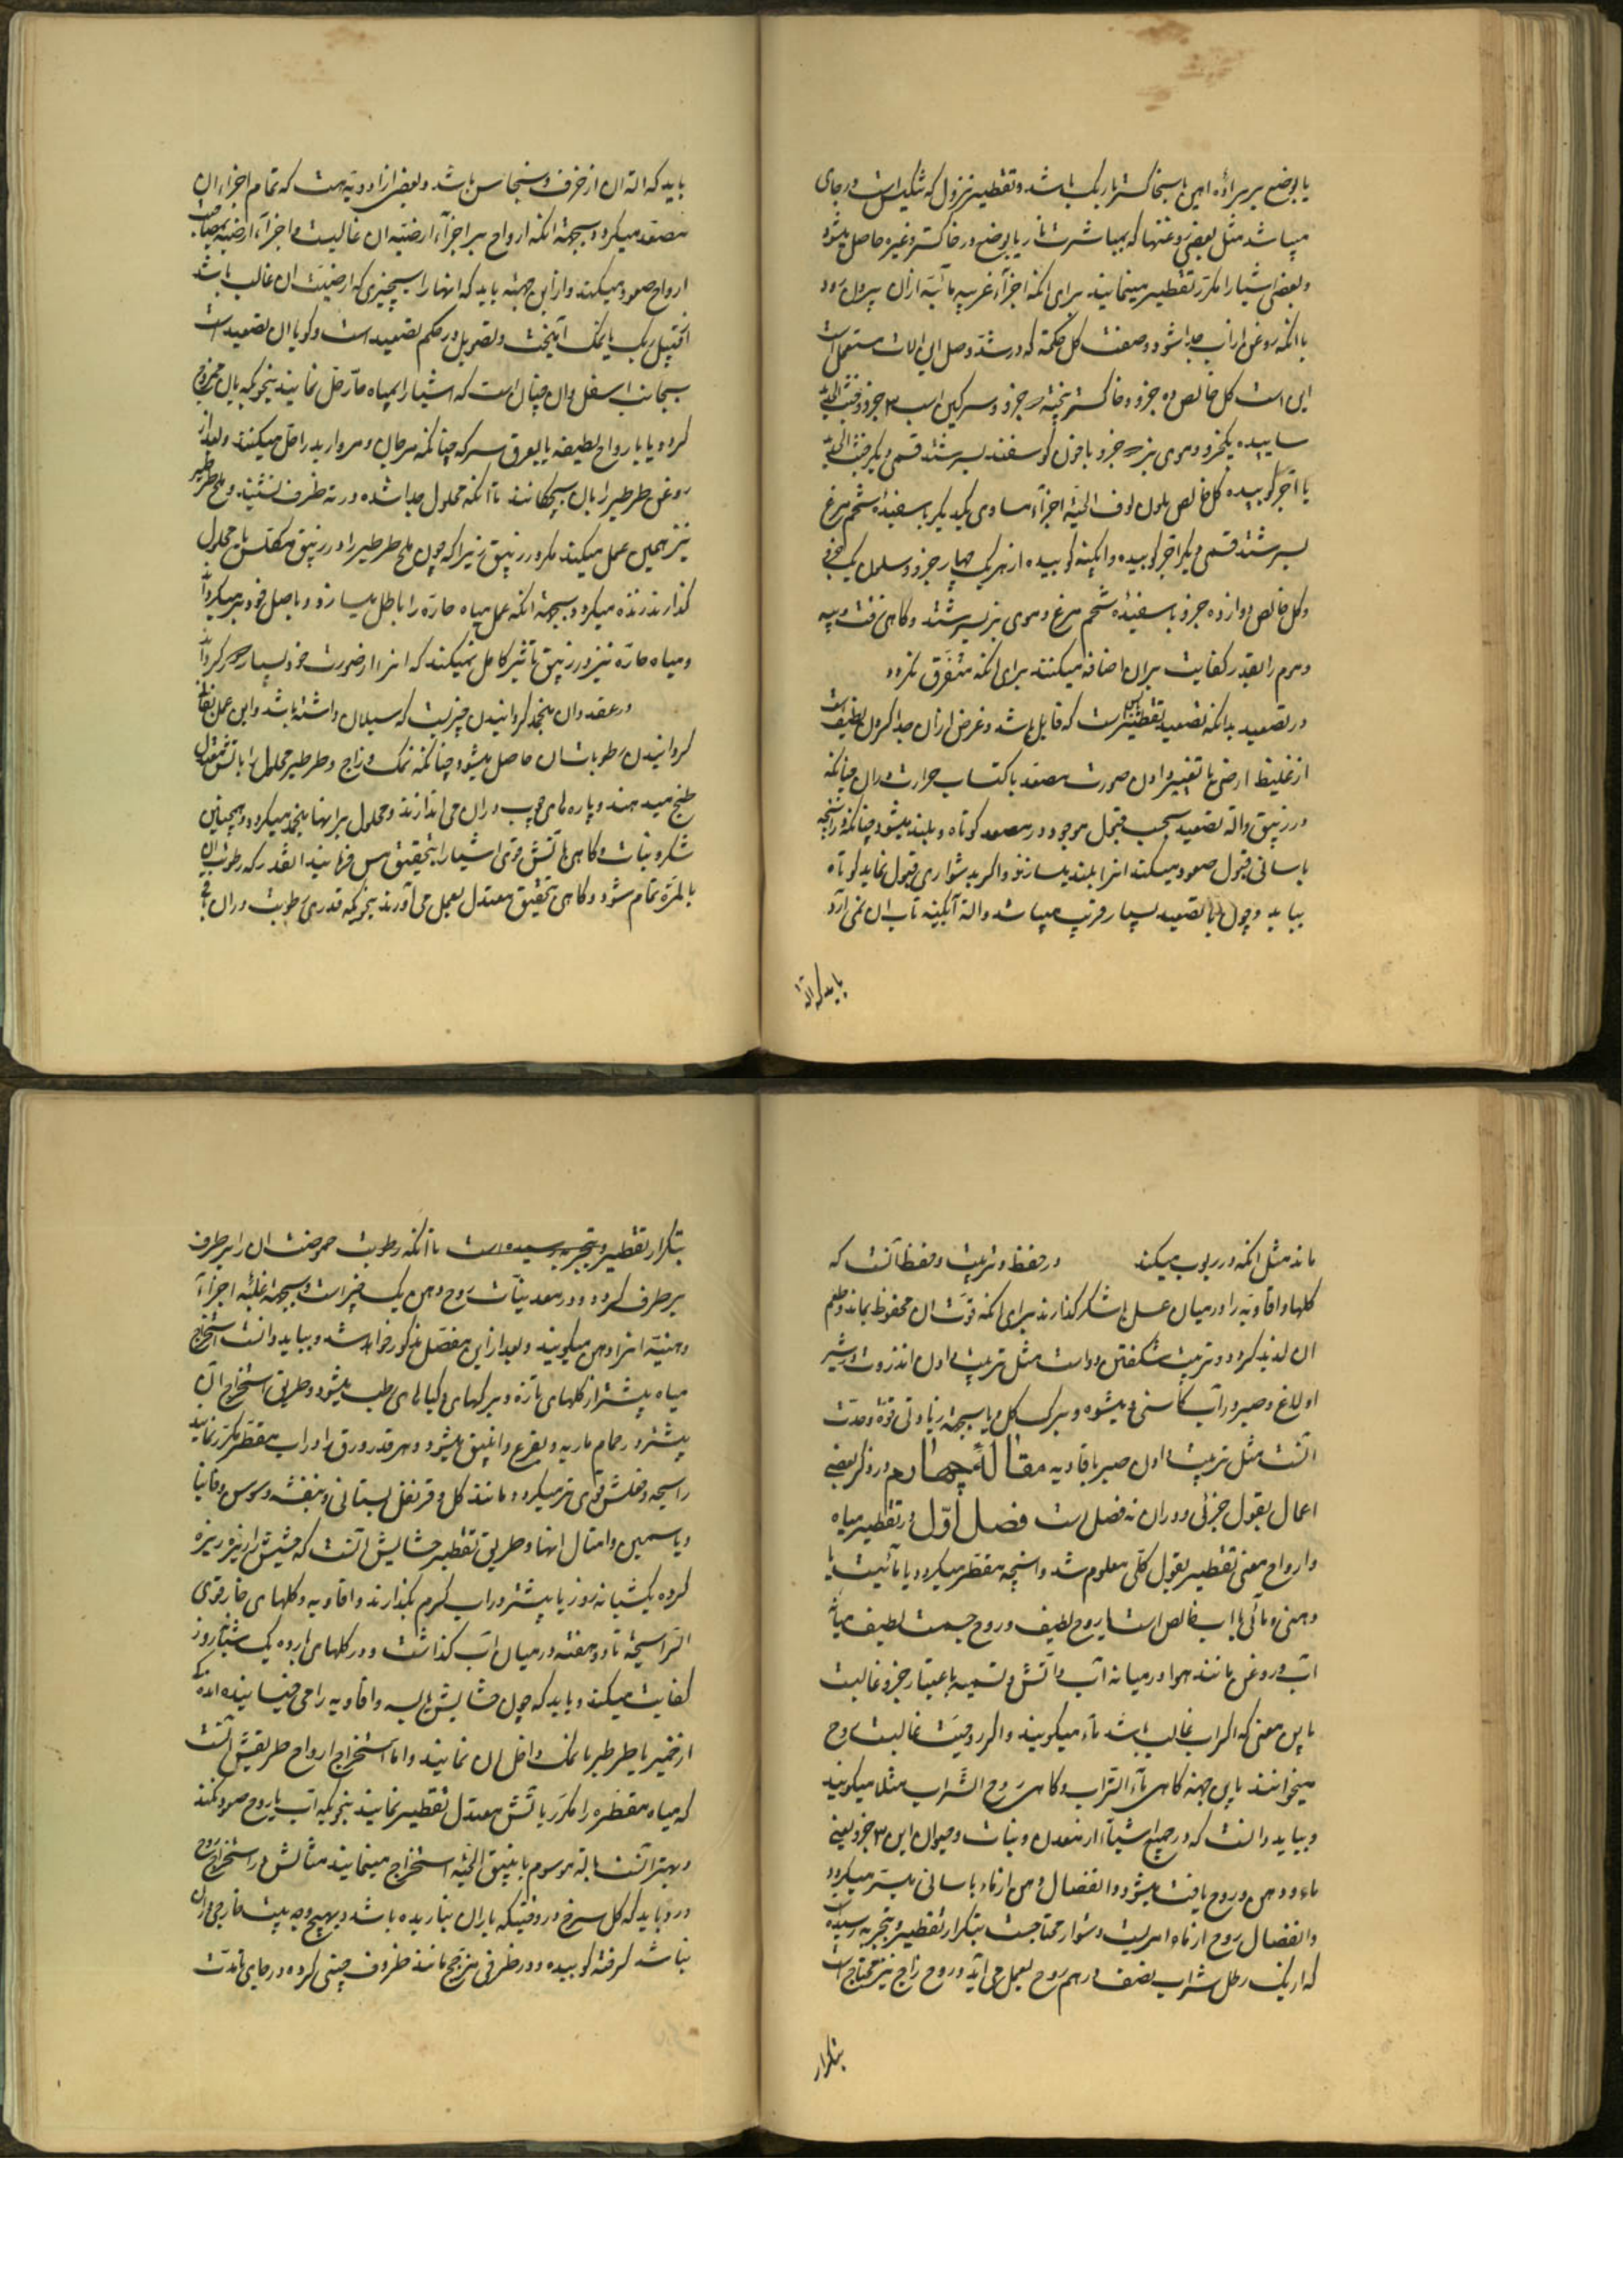 یا بوضع بر برادهٔ اهن یا بخاکستر یا ریک باشد و تقطیر نزول که شکیل است در جای
میباشد مثل بعضی روغنها که بمباشرت نار یا بوضع در خاکستر و غیره حاصل میشود
و بعضی اشیا را مکرّر تقطیر مینمایند برای انکه اجزآء غریبه مائیّه ازان بیرون رود
یا انکه روغن از اب جدا شود و صفت کل حکمة که در شدّ وصل این الات مستعمل است
این است کل خالص ده جزو و خاکستر پخته جزو و سرکین اسب ۳ جزو و خبث الحدید
ساییده یکجزو و موی بز جزو با خون کوسفند بسرشند قسمی دیکر خبث الحدید
یا اجر کوبیده کل خالص بلون لوف الحیّه اجزآء مساوی یکدیکر با سفیدهٔ تخم مرغ
بسرشند قسمی دیکر اجر کوبیده و ابکینه کوبیده از هر یک چهار جزو و سلمون یک جزو
و کل خالص دوازده جزو با سفیدهٔ تخم مرغ و موی بز بسرشند و کاهی زفت و پیه
و موم را بقدر کفایت بران اضافه میکنند برای انکه متفرّق نکردد
در تصعید بدانکه تصعید تقطیر یابس است که قابل باشد و غرض ازان جدا کردن لطیف است
از غلیظ ارضی با تغییر دادن صورت مصعد باکتساب حرارت دران چنانکه
در زیبق و الة تصعید بحسب تحمل موجود در مصعد کوتاه و بلند میشود چنانکه هر انچه
باسانی قبول صعود میکند انرا بلند میسازند و اکر بدشواری قبول نماید کوتاه
بباید و چون نار تصعید بسیار قریب میباشد و الة آبکینه تاب ان نمی آرد
باید که الة
باید که الة ان از خزف و نحاس باشد و بعضی از ادویّه هست که تمام اجزاء ان
مصعد میکردد بجهة انکه ارواح بر اجزآء ارضیّه ان غالبست و اجزآء ارضیّه بمصاحبت
ارواح صعود میکند و ازاین جهة باید که انها را بچیزی که ارضیّت ان غالب باشد
از قبیل ریک یا نمک آمیخت و تصویل در حکم تصعید است و کویا ان تصعید است
بجانب اسفل و ان چنان است که اشیا را بمیاه حارّه حل نمایند بنحویکه بان ممزوج
کردد یا بارواح لطیفه یا بعرق سرکه چنانکه مرجان و مروارید را حلّ میکنند و بعد از
روغن طرطیر را بان میچکانند تا آنکه محلول جدا شده در ته ظرف نشیند و ملح طرطیر
نیز همین عمل میکند مکر در زیبق زیرا که چون ملح طرطیر را در زیبق مکلّس یا محلول
کذارند زنده میکردد بجهة انکه عمل میاه حارّه را باطل میسازد و باصل خود بر میکرداند
و میاه حارّه نیز در زیبق تاثیر کامل نمیکند که انرا از صورت خود بسیار دور کرداند
در عقد و ان منجمد کردانیدن چیزیست که سیلان داشته باشد و این عمل بفانی
کردانیدن رطوبات ان حاصل میشود چنانکه نمک و زاج و طرطیر محلول را باتش معتدل
طبخ میدهند و پاره های چوب دران می اندازند و محلول بر انها منجمد میکردد و همچنین
شکر و نبات و کاهی باتش قوی اشیا را بتحقیق مس فرمایند انقدر که رطوبت ان
بالمرّه تمام شود و کاهی بتحقیق معتدل بعمل می آورند بنحویکه قدری رطوبت دران باقی
ماند مثل انکه در ربوب میکنند در حفظ و تربیت و حفظ آنست که
کلها و افاویّه را در میان عسل یا شکر کذارند برای انکه قوّت ان محفوظ بماند و طعم
ان لذیذ کردد و تربیت شکفتن دواست مثل تربیت دادن انذروت در شیر
اولاغ و صبر در آب کاسنی میشود و ببرک کل یا بجهة زیادتی قوّة و حدّت
آنست مثل تربیت دادن صبر بافاویه مقالهٔ چهارم در ذکر بعضی
اعمال بقول جزئی و دران نه فصل است فصل اوّل در تقطیر میاه
و ارواح معنی تقطیر بقول کلّی معلوم شد و انچه مقطّر میکردد یا مائیست یا
دهنی و مائی یا اب خالص است یا روح لطیف و روح جسمیست لطیف میان
اب و روغن مانند هوا در میانه آب و آتش و تسمیه باعتبار جزو غالبست
باین معنی که اکر اب غالب باشد مآء میکویند و اکر روحیّت غالبست روح
میخوانند باین جهة کاهی مآء الشّراب و کاهی روح الشّراب مثلا میکویند
و بباید دانست که در جمیع اشیآء از معدن و نبات و حیوان این ۳ جزو یعنی
ماء و دهن و روح یافت میشود و انفصال دهن از ماء باسانی میسّر میکردد
و انفصال روح از ماء امریست دشوار محتاجست بتکرار تقطیر و بتجربه رسیده
که از یک رطل شراب نصف درهم روح بعمل می آید و روح زاج نیز محتاج است
بتکرار
بتکرار تقطیر و بتجربه رسیده است تا انکه رطوبت حموضت ان را بر طرف
بر طرف کردد و در معدنیّات روح و دهن یک چیز است و بجهة غلبه اجزآء
دهنیّه انرا دهن میکویند و بعد ازاین مفصّل مذکور خواهد شد و بباید دانست استخراج
میاه بیشتر از کلهای تازه و برکهای و کیاهای رطب میشود و طریق استخراج آن
بیشتر در حمام ماریه و بقرع و انبیق میشود و هر قدر ورق را در اب مقطر مکرّر نمایند
رایحه و فعلش قوی تر میکردد مانند کل و قرنفل بستانی و بنفشه و سوسن و فانیا
و یاسمین و امثال انها و طریق تقطیر حشایش آنست که حشیش را ریز ریزه
کرده یکشبانه روز یا بیشتر در اب کرم بکذارند و افاویه و کلهای حار قوی
الرّایحة تا دو هفته در میان اب کذاشت و در کلهای بارده یک شبانروز
کفایت میکند و باید که چون حشایش یابسه و افاویه را می خیسانند اندکی
از خمیر یا طرطیر یا نمک داخل ان نمایند و اما استخراج ارواح طریقش آنست
که میاه مقطّره را مکرّر باتش معتدل تقطیر نمایند بنحویکه آب یا روح صعود نکند
و بهتر آنست بالة موسوم بانبیق الحیّه استخراج مینمایند مثالش در استخراج روح
ورد باید که کل سرخ در وقتیکه باران نباریده باشد و بهیچ وجه بیت خارجی دران
نباشد کرفته کوبیده و در ظرفی مزجّج مانند ظروف چینی کرده در جای باندت